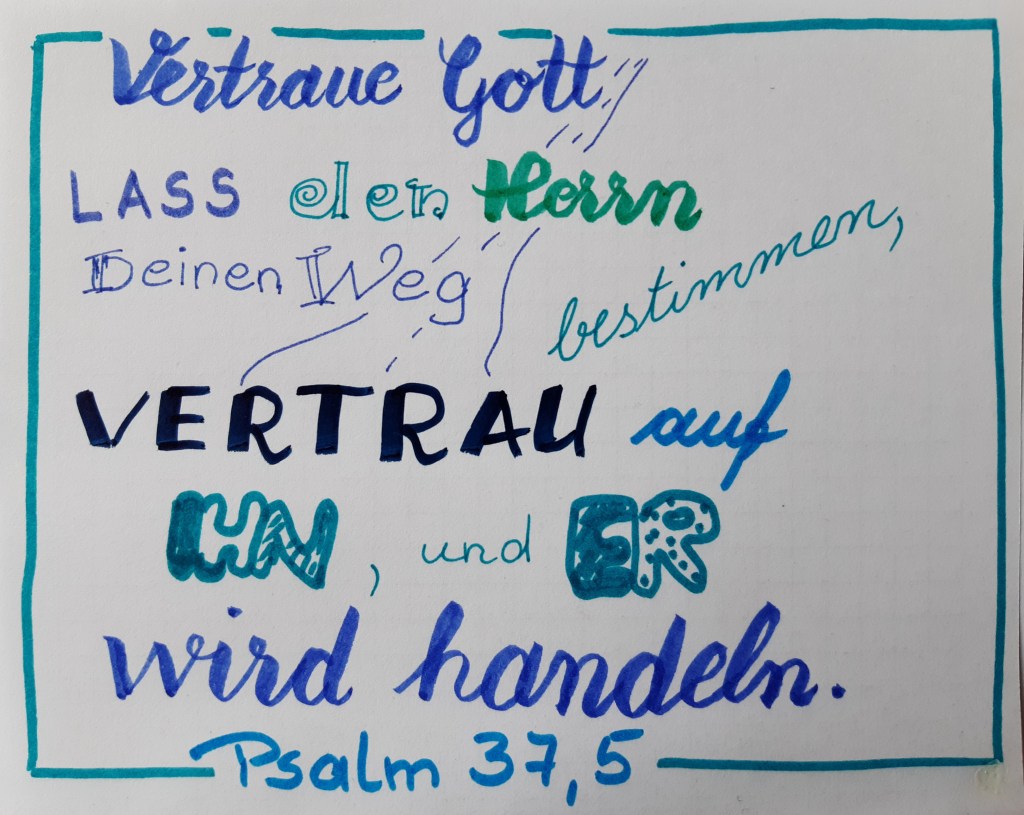 Vertraue Gott
LASS den Herrn
Deinen Weg bestimmen,
VERTRAU auf
IHN, und ER
wird handeln.
Psalm 37,5